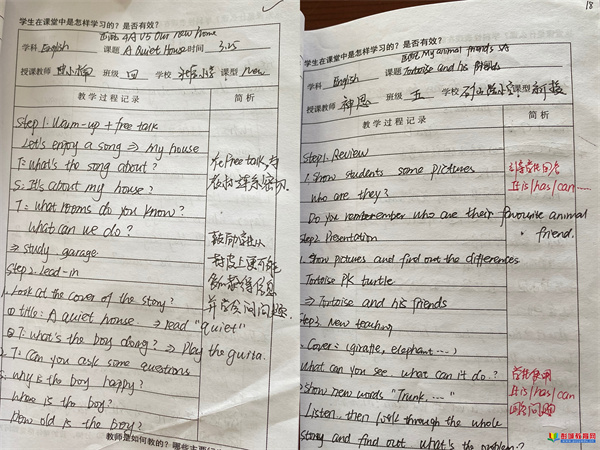 学生在课堂中是怎样学习的？是否有效？
学科 English 课题 4A U5 Our new home
A Quiet House 时间 3.25
授课教师 班级 四 学校 课型 New
教学过程记录 简析
Step 1. Warm-up + free talk
Let's enjoy a song ⇒ my house
T: What's the song about?
S: It's about my house?
T: What rooms do you know?
What can we do?
⇒ study garage
Step 2. Lead-in
1. Look at the cover of the story?
① title: A quiet house ⇒ read "quiet"
② T: What's the boy doing? ⇒ Play the guita.
2. T: Can you ask some questions
S: why is the boy happy?
Where is the boy?
How old is the boy?
在free talk
鼓励学生从
封皮上
获得信息
并学会问问题.
教师是如何教的？哪些主要
18
学生在课堂中是怎样学习的？是否有效？
学科 English 课题 My animal friends 5A
Tortoise and his friends
授课教师 班级 五 学校 课型 新授
教学过程记录 简析
Step1. Review
1. Show students some pictures
Who are they?
Do you remberember who are their favourite animal
friend.
Step2. Presentation
1. Show pictures and find out the differences
Tortoise PK turtle
⇒ Tortoise and his friends
Step3. New teaching
1. Cover: (giraffe, elephant ……)
What can you see. What can it do?
2. Show new words "Trunk. …"
Listen. then look through the whole
story and find out what's the problem?
It is/has/can……
学生使用
It is/has/can
回答问题